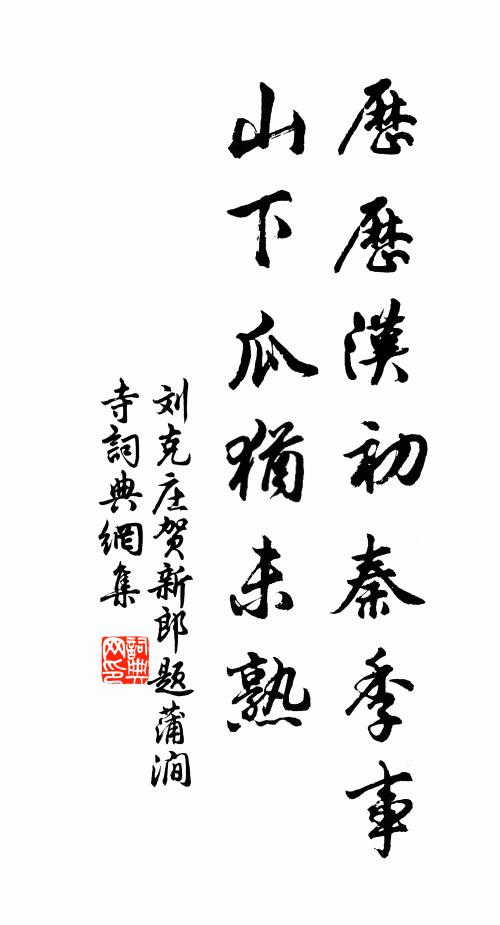 歷歷漢初秦季事
山下瓜猶未熟
刘克庄贺新郎题蒲涧
寺詞典網集
詞典网印